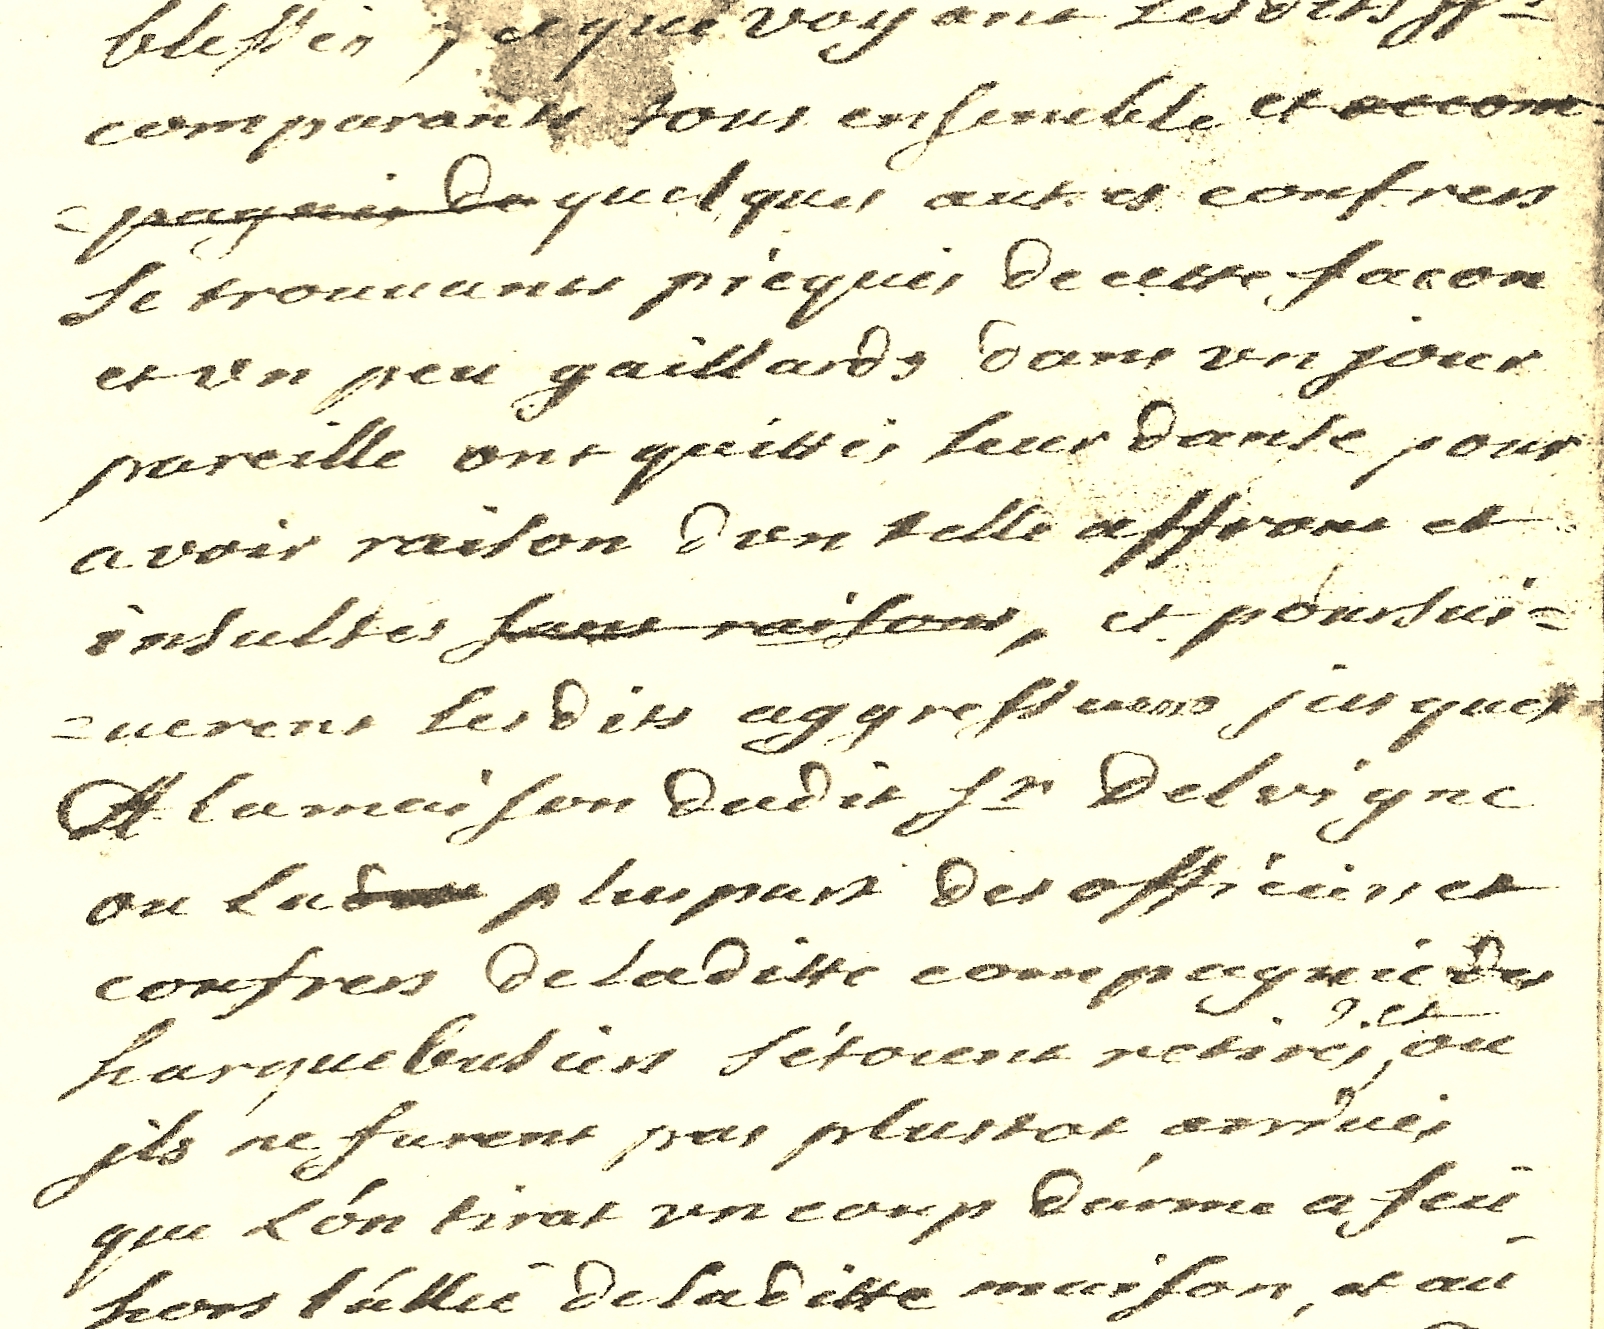 blessés, et que voyant lesdits srs
comparants tous ensemble et accom-
=pagnés de quelques autres confrers
se trouvants picqués de cette facon
et un peu gaillards dans un jour
pareille ont quittés leur danse pour
avoir raison d'un telle affront et
insultes sans raisons, et poursui=
=uerent lesdits aggresseurs jusques
A la maison dudit sr Delvigne
ou la plus part des officiers et
confrers de laditte compagnie des
harquebusiers s'étoient retirés, et ou
jls ne furent pas plustot arriués
que L'on tirat un coup d'arme a feu
hors l'allée de laditte maison, et au